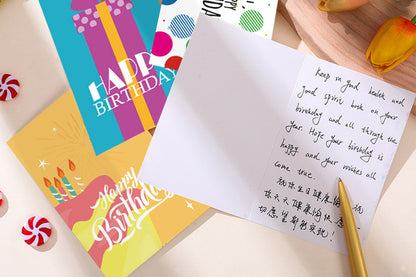 HAPPY
BIRTHDAY
Happy
Birthday
Keep in good health and
good spirit both on your
birthday and all through the
year. Hope your birthday is
happy and your wishes all
come true.
祝你生日健康愉快 祝
你天天健康愉快 一
切愿望都能实现!